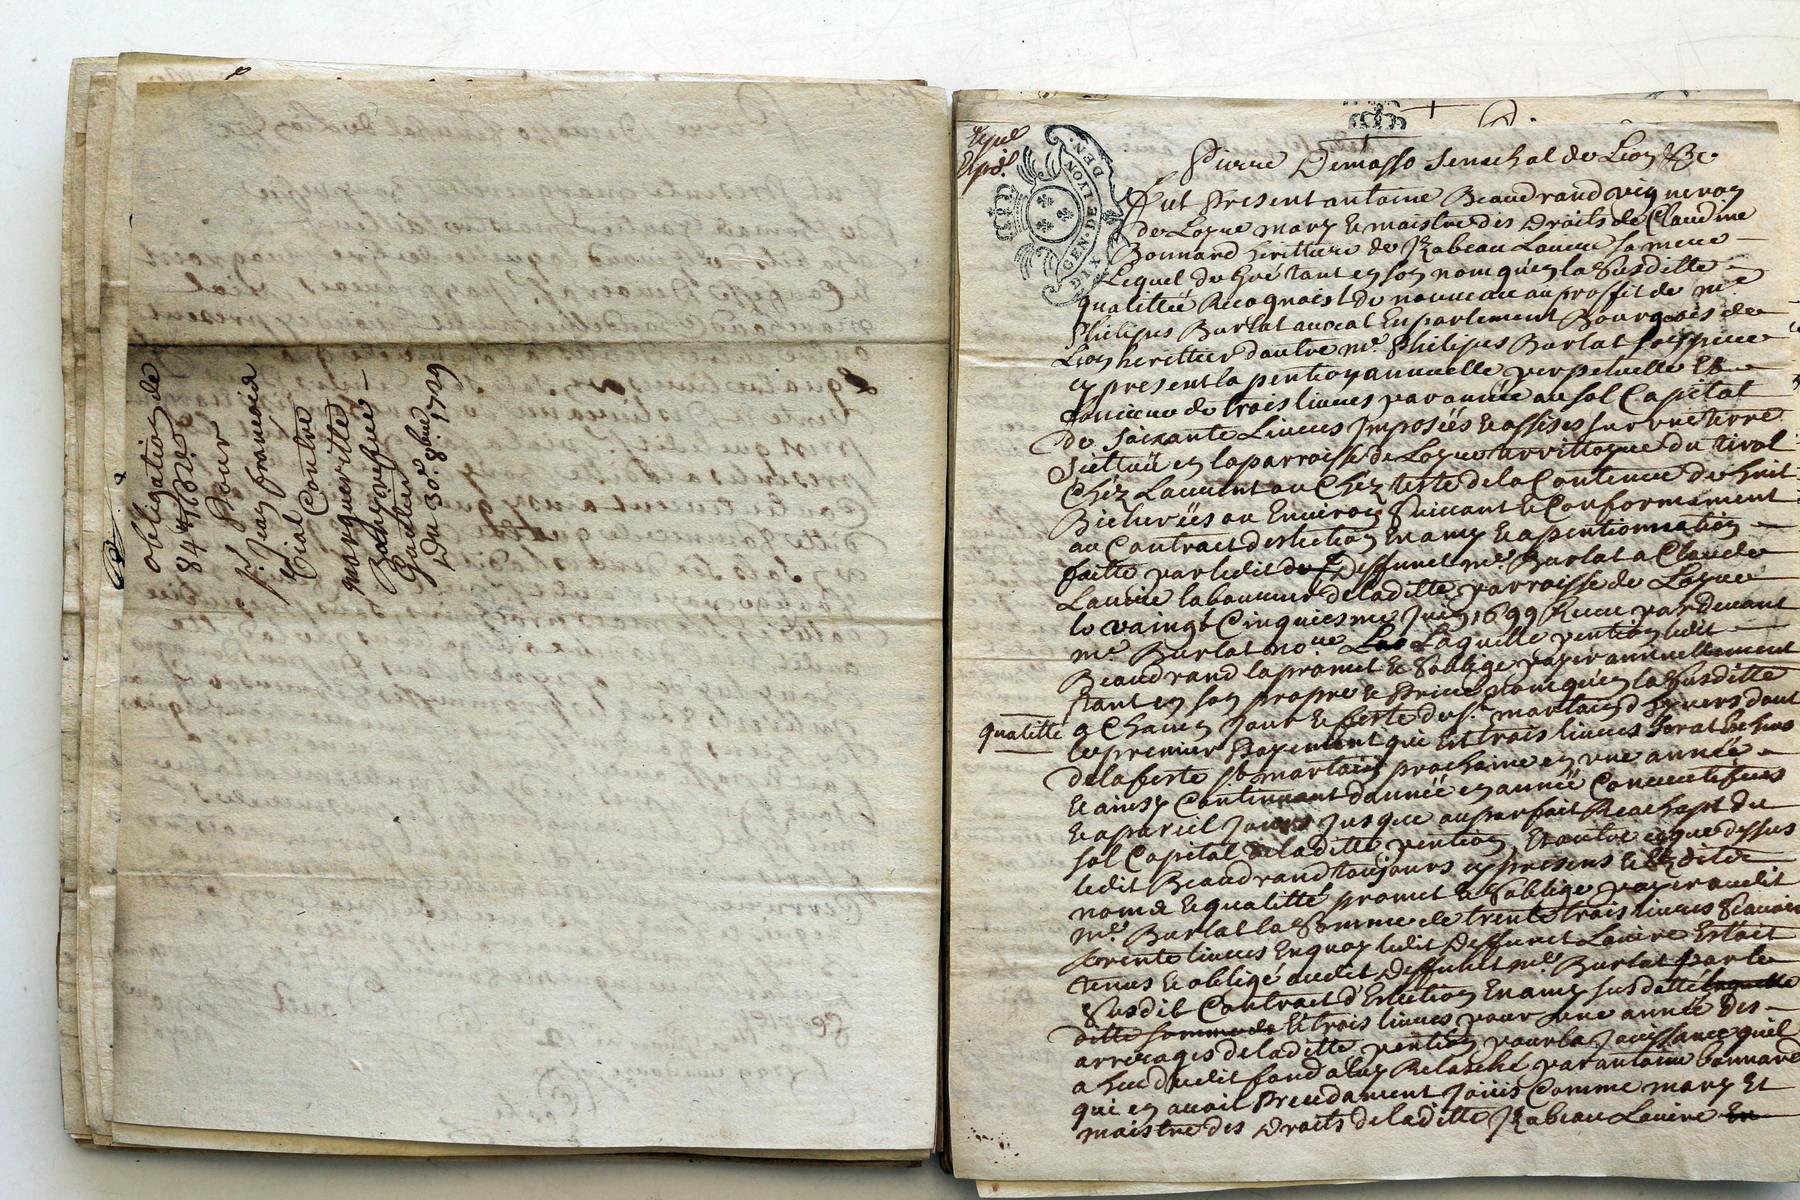 obligation de
84
Pour
sr. Jean francois
Vial Contre
margueritte
Gautier
Du 30e. 8bre 1729
GEN. DE LYON.
DIX DEN.
Pierre Demasso Senechal de Lion &c
fut Present antoine Beaudrand vigneron
de Logue mary & maistre des Droits de Claudine
Bonnard herittiere de Izabeau Lauire sa mere
Lequel de Gré tant en son nom qu'en la Susditte
qualitté Recognoist de nouveau au proffit de me
Philipes Burlat auocat En parlement Bourgeois de
Lion herittier d'autre me. Philipes Burlat
cy present la pention annuelle perpetuelle Et
fonciere de trois liures par année au sol Capital
de soixante Liures Imposées & assises sur une terre
Sittuée en la parroisse de Logue
Chéz Laurent ou Chéz teste de la Contenue de huit
Bicherées ou Enuiron suiuant & Conformement
au Contract d'eslection En amy & apentionnation
faitte par ledit deffunct me. Burlat a Claude
Lauire laboureur de laditte parroisse de Logue
le vaingt Cinquiesme Juin 1699 Receu par deuant
me. Burlat nore Laquelle pention ledit
Beaudrand la promet & S'oblige payer annuellement
tant en son propre & Priué nom qu'en la Susditte
qualitté a Chacun Jour & feste de st. martain d'hyuers dont
le premier Payement qui Est trois liures
de la feste st martain prochaine en une année
& ainsy Continuant d'année en année Conceutifues
& a pareil Jour Jusque au parfait Reachapt du
sol Capital de laditte pention, Et outre ce que dessus
ledit Beaudrand toujours cy present &
noms & qualitté promet & S'oblige payer audit
me. Burlat la Somme de trente trois liures Scauoir
trente liures En quoy ledit Deffunct Lauire Estoit
tenus & obligé audit Deffunct me. Burlat par le
Susdit Contract d'Eslection En amy susdatté laquelle
ditte somme de Et trois liures pour une année des
arrerages de laditte pention pour la Jouissance quil
a heu dudit fond a luy Relasché par antoine bonnard
qui en auoit Precedament Jouis Comme mary Et
maistre des Droits de laditte Izabeau Lauire En